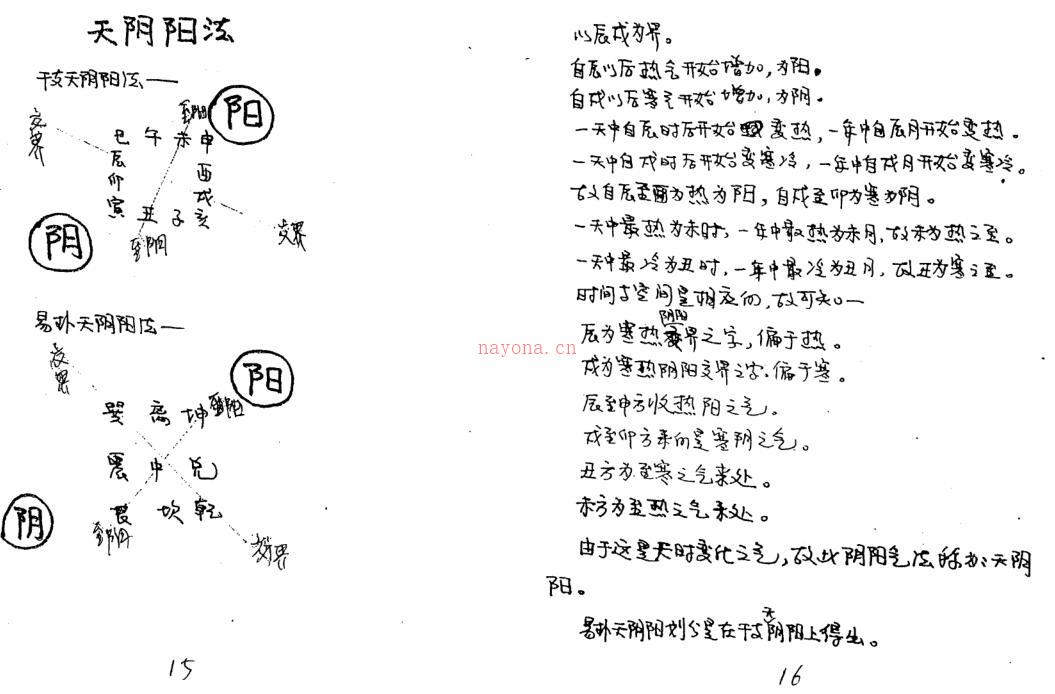 天阴阳法
干支天阴阳法——
至阳
阳
交界
巳午未申
辰
酉
卯
戌
寅
丑子亥
交界
阴
至阴
易卦天阴阳法——
交界
阳
巽离坤
至阳
震中兑
艮坎乾
阴
至阴
交界
15
以辰戌为界。
自辰以后热气开始增加,为阳。
自戌以后寒气开始增加,为阴。
一天中自辰时后开始变热,一年中自辰月开始变热。
一天中自戌时后开始变寒冷,一年中自戌月开始变寒冷。
故自辰至酉为热为阳,自戌至卯为寒为阴。
一天中最热为未时,一年中最热为未月,故未为热之至。
一天中最冷为丑时,一年中最冷为丑月,故丑为寒之至。
时间与空间是相应的,故可知——
辰为寒热阴阳交界之字,偏于热。
戌为寒热阴阳交界之字,偏于寒。
辰至申方收热阳之气。
戌至卯方来的是寒阴之气。
丑方为至寒之气来处。
未方为至热之气来处。
由于这是天时变化之气,故此阴阳气法称为:天阴
阳。
易卦天阴阳划分是在干支天阴阳上得出。
16
nayona.cn